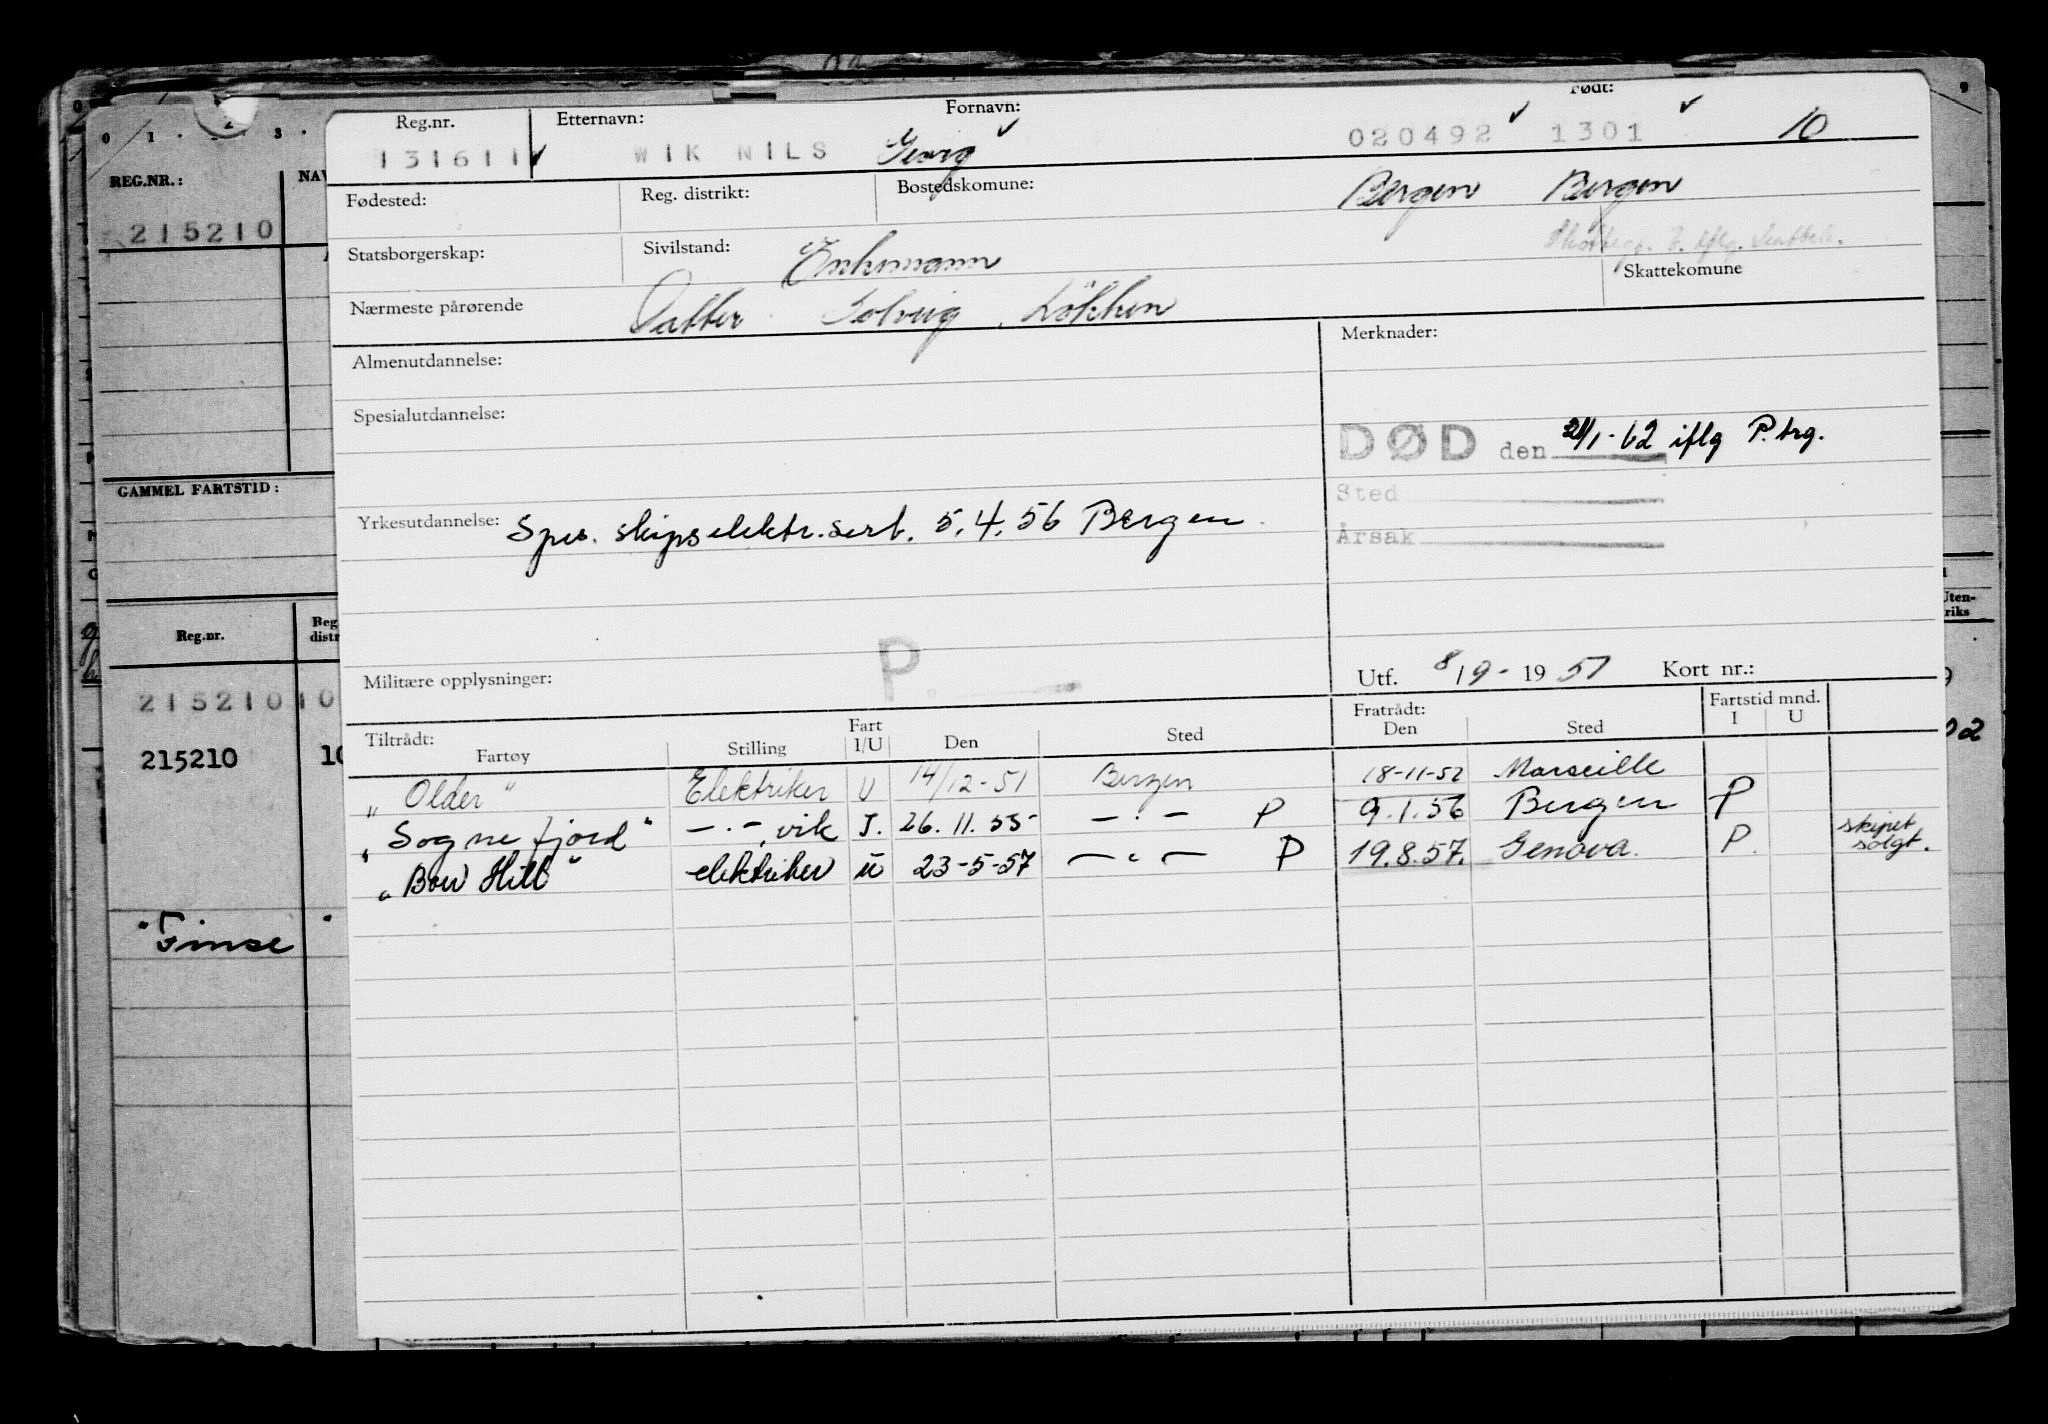 Reg.nr. Etternavn: Fornavn: Født:
131611 WIK NILS Georg 020492 1301 10
Fødested: Reg. distrikt: Bostedskomune: Bergen Bergen
Statsborgerskap: Sivilstand: Enkemann Skattekomune
Nærmeste pårørende Datter Solveig, Løkken
Almenutdannelse: Merknader:
Spesialutdannelse:
DØD den 21/1-62 iflg P.trg.
Sted
Årsak
Yrkesutdannelse: Spes. skipselektr.sert. 5.4.56 Bergen
P.
Militære opplysninger: Utf. 8/9-1951 Kort nr.:
Tiltrådt: Fart Fratrådt: Fartstid mnd.
Fartøy Stilling I/U Den Sted Den Sted I U
"Older" Elektriker U 14/12-51 Bergen 18-11-52 Marseille
"Sognefjord" —·— vik I. 26.11.55 —·— P 9.1.56 Bergen P
"Bow Hill" elektriker u 23-5-57 —"— P 19.8.57. Genova. P. skipet solgt.
REG.NR.: NAV
215210
GAMMEL FARTSTID:
Reg.nr. Reg distr
215210 10
215210 10
"Finse"
Uten-
riks